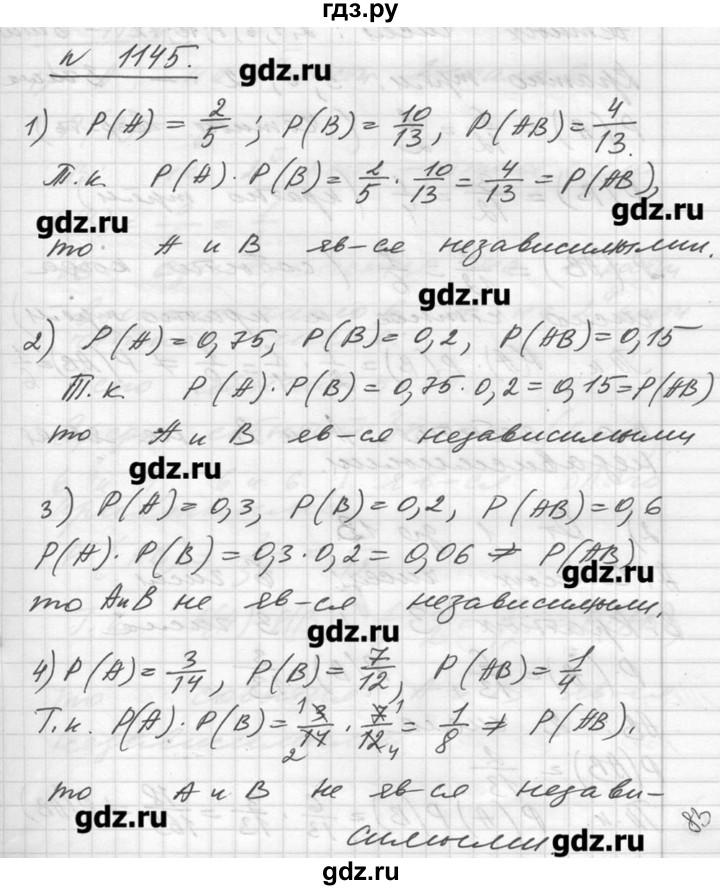 гдз.ру
№ 1145.
gdz.ru
1) P(A) = 2/5; P(B) = 10/13, P(AB) = 4/13.
Т.к. P(A)·P(B) = 2/5 · 10/13 = 4/13 = P(AB),
gdz.ru
gdz.ru
то A и B яв-ся независимыми.
gdz.ru
2) P(A) = 0,75, P(B) = 0,2, P(AB) = 0,15
Т.к. P(A)·P(B) = 0,75·0,2 = 0,15 = P(AB)
то A и B яв-ся независимыми
gdz.ru
3) P(A) = 0,3, P(B) = 0,2, P(AB) = 0,6
P(A)·P(B) = 0,3·0,2 = 0,06 ≠ P(AB)
gdz.ru
то A и B не яв-ся независимыми.
gdz.ru
4) P(A) = 3/14, P(B) = 7/12, P(AB) = 1/4
Т.к. P(A)·P(B) = 3/14 · 7/12 = 1/8 ≠ P(AB).
то A и B не яв-ся незави-
gdz.ru
симыми.
gdz.ru
83
гдз.ру